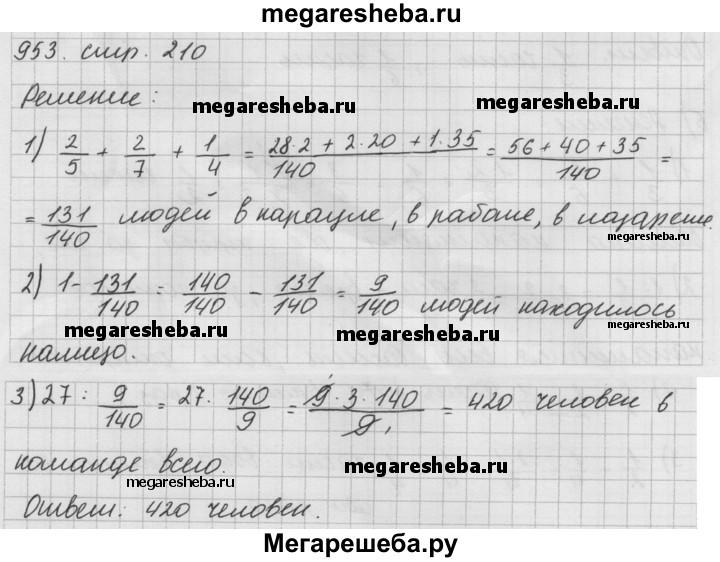 megaresheba.ru
953. стр. 210
Решение:
megaresheba.ru
megaresheba.ru
1) 2/5 + 2/7 + 1/4 = (28·2 + 2·20 + 1·35)/140 = (56 + 40 + 35)/140 =
= 131/140 людей в карауле, в работе, в лазарете.
megaresheba.ru
2) 1 - 131/140 = 140/140 - 131/140 = 9/140 людей находилось
megaresheba.ru
megaresheba.ru
налицо.
3) 27 : 9/140 = 27 · 140/9 = (9·3·140)/9 = 420 человек в
команде всего.
megaresheba.ru
megaresheba.ru
Ответ: 420 человек.
Мегарешеба.ру